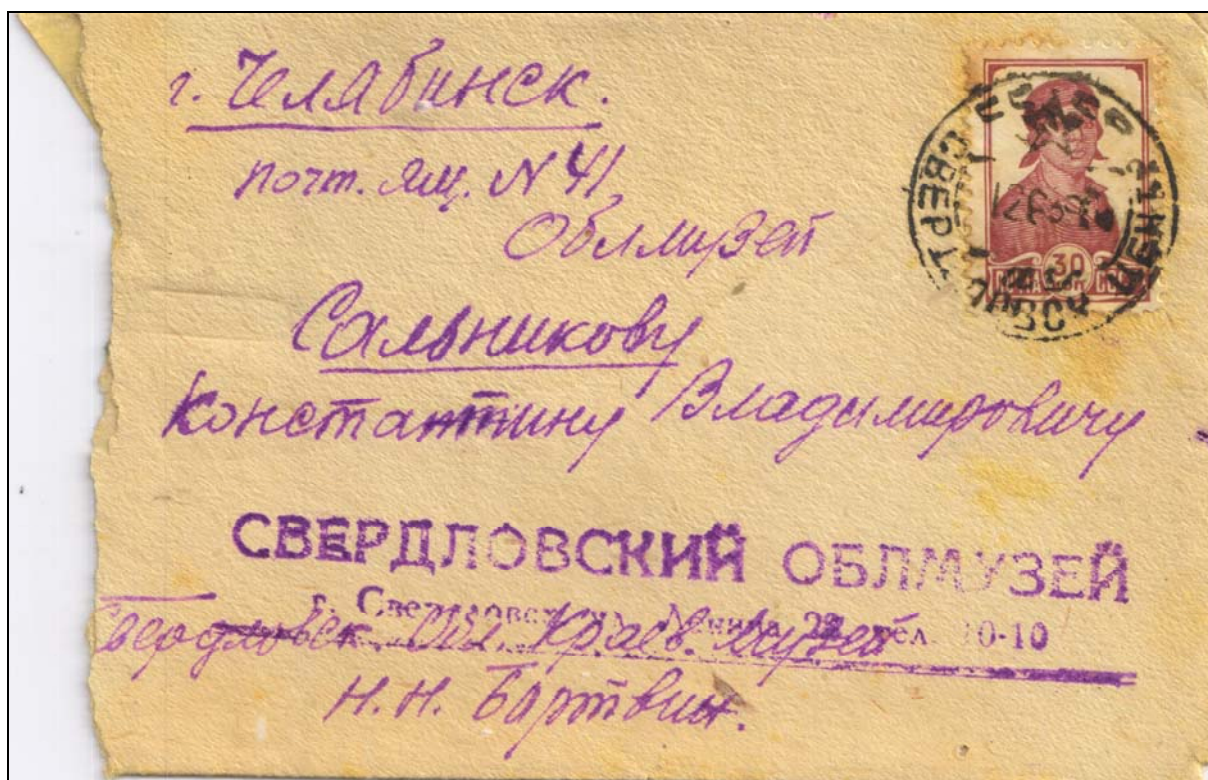 г. Челябинск.
почт. ящ. N 41
Облмузей
Сальникову
Константину Владимировичу
СВЕРДЛОВСКИЙ ОБЛМУЗЕЙ
г. Свердловск, ул. Ленина, 22, тел. 10-10
Свердловск. Обл. Краев. музей
Н. Н. Бортвин.
СВЕРДЛОВСК ЦЕНТР
30
ПОЧТА СССР